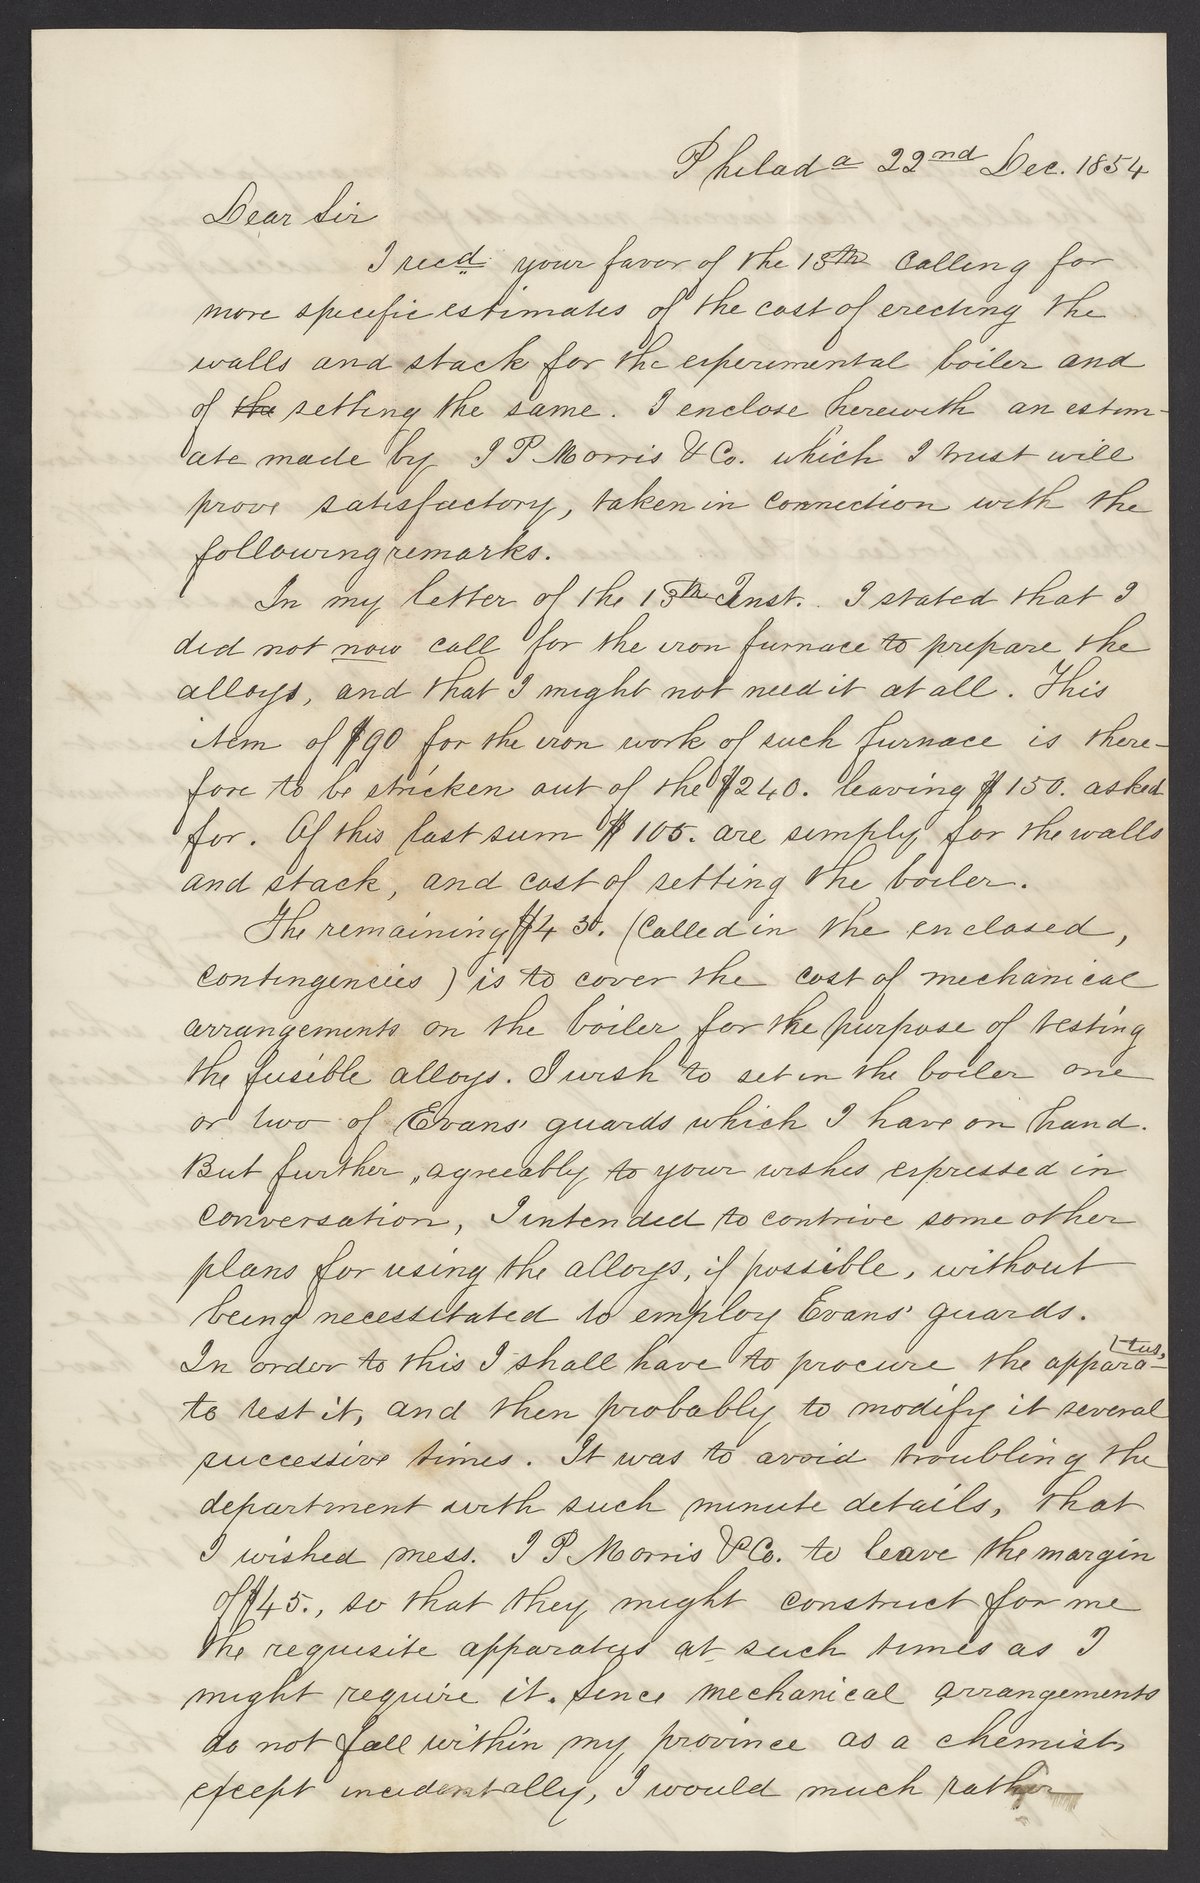 Philada 22nd Dec. 1854
Dear Sir
I recd your favor of the 18th calling for
more specific estimates of the cost of erecting the
walls and stack for the experimental boiler and
of the setting the same. I enclose herewith an estim-
ate made by I P Morris & Co. which I trust will
prove satisfactory, taken in connection with the
following remarks.
In my letter of the 13th Inst. I stated that I
did not now call for the iron furnace to prepare the
alloys, and that I might not need it at all. This
item of $90 for the iron work of such furnace is there-
fore to be stricken out of the $240. leaving $150. asked
for. Of this last sum $105. are simply for the walls
and stack, and cost of setting the boiler.
The remaining $45. (Called in the enclosed,
contingencies) is to cover the cost of mechanical
arrangements on the boiler for the purpose of testing
the fusible alloys. I wish to set in the boiler one
or two of Evans' guards which I have on hand.
But further, agreeably to your wishes expressed in
conversation, I intended to contrive some other
plans for using the alloys, if possible, without
being necessitated to employ Evans' guards.
In order to this I shall have to procure the appara-tus,
to test it, and then probably to modify it several
successive times. It was to avoid troubling the
department with such minute details, that
I wished mess. I P Morris & Co. to leave the margin
of $45., so that they might construct for me
the requisite apparatus at such times as I
might require it. Since mechanical arrangements
do not fall within my province as a chemist,
except incidentally, I would much rather